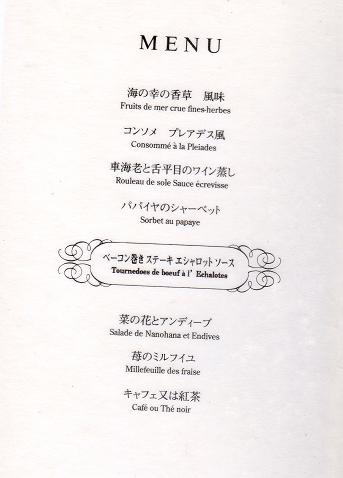 MENU
海の幸の香草　風味
Fruits de mer crue fines-herbes
コンソメ　プレアデス風
Consommé à la Pleiades
車海老と舌平目のワイン蒸し
Rouleau de sole Sauce écrevisse
パパイヤのシャーベット
Sorbet au papaye
ベーコン巻き ステーキ エシャロット ソース
Tournedoes de boeuf à l' Echalotes
菜の花とアンディーブ
Salade de Nanohana et Endives
苺のミルフイユ
Millefeuille des fraise
キャフェ又は紅茶
Café ou Thé noir